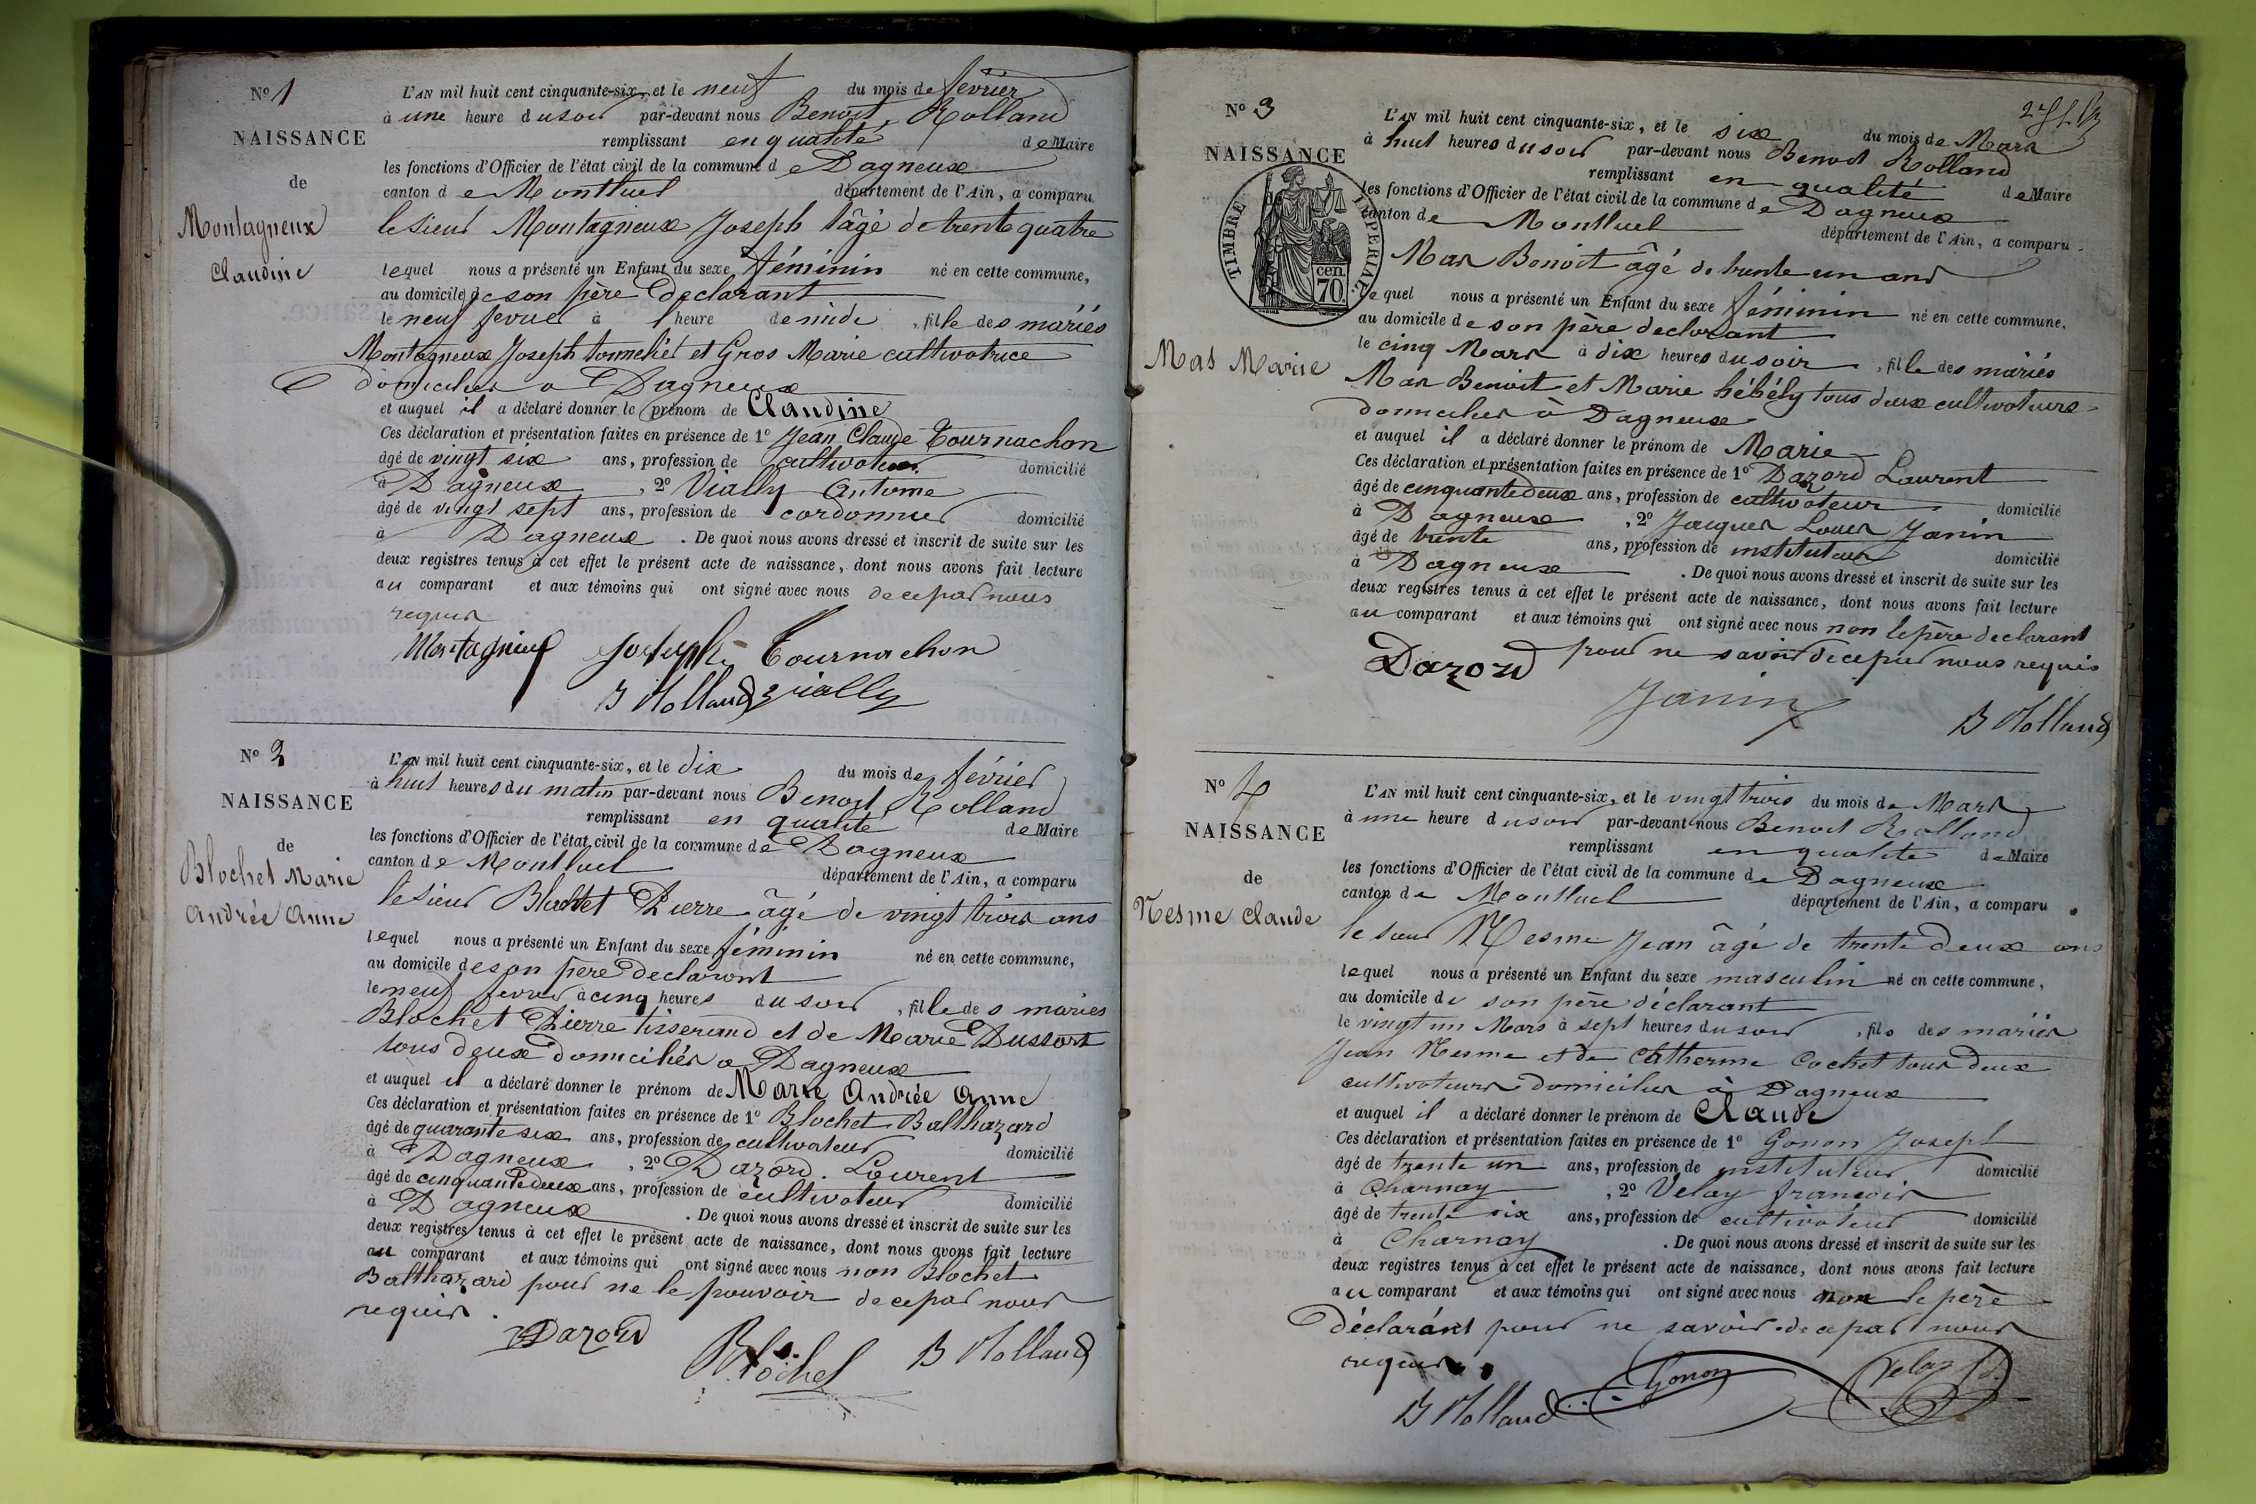 N° 1
NAISSANCE
de
Montagneux
Claudine
L'AN mil huit cent cinquante-six, et le neuf du mois de février
à une heure du soir par-devant nous Benoit Rolland
remplissant en qualité de Maire
les fonctions d'Officier de l'état civil de la commune de Dagneux
canton de Montluel département de l'Ain, a comparu
le sieur Montagneux Joseph âgé de trente quatre
lequel nous a présenté un Enfant du sexe féminin né en cette commune,
au domicile de son père declarant
le neuf fevrier à 1 heure de midi, fille des mariés
Montagneux Joseph tonnelier et Gros Marie cultivatrice
domiciliés a Dagneux
et auquel il a déclaré donner le prénom de Claudine
Ces déclaration et présentation faites en présence de 1° Jean Claude Tournachon
âgé de vingt six ans, profession de cultivateur domicilié
à Dagneux, 2° Vially Antoine
âgé de vingt sept ans, profession de cordonnier domicilié
à Dagneux. De quoi nous avons dressé et inscrit de suite sur les
deux registres tenus à cet effet le présent acte de naissance, dont nous avons fait lecture
au comparant et aux témoins qui ont signé avec nous de ce par nous
requis
Montagneux Joseph Tournachon
B Rolland Vially
N° 2
NAISSANCE
de
Blochet Marie
Andrée Anne
L'AN mil huit cent cinquante-six, et le dix du mois de février
à huit heures du matin par-devant nous Benoit Rolland
remplissant en qualité de Maire
les fonctions d'Officier de l'état civil de la commune de Dagneux
canton de Montluel département de l'Ain, a comparu
le sieur Blochet Pierre âgé de vingt trois ans
lequel nous a présenté un Enfant du sexe féminin né en cette commune,
au domicile de son père declarant
le neuf fevrier à cinq heures du soir, fille des mariés
Blochet Pierre tisserand et de Marie Dussort
tous deux domiciliés a Dagneux
et auquel il a déclaré donner le prénom de Marie Andrée Anne
Ces déclaration et présentation faites en présence de 1° Blochet Balthazard
âgé de quarante six ans, profession de cultivateur domicilié
à Dagneux, 2° Dazord Laurent
âgé de cinquante deux ans, profession de cultivateur domicilié
à Dagneux. De quoi nous avons dressé et inscrit de suite sur les
deux registres tenus à cet effet le présent acte de naissance, dont nous avons fait lecture
au comparant et aux témoins qui ont signé avec nous non Blochet
Balthazard pour ne le pouvoir de ce par nous
requis.
Dazord Blochet B Rolland
N° 3
NAISSANCE
TIMBRE IMPERIAL
70 cen.
Mas Marie
L'AN mil huit cent cinquante-six, et le six du mois de Mars
à huit heures du soir par-devant nous Benoit Rolland
remplissant en qualité de Maire
les fonctions d'Officier de l'état civil de la commune de Dagneux
canton de Montluel département de l'Ain, a comparu
Mas Benoit âgé de trente un ans
lequel nous a présenté un Enfant du sexe féminin né en cette commune,
au domicile de son père declarant
le cinq Mars à dix heures du soir, fille des mariés
Mas Benoit et Marie hébély tous deux cultivateurs
domiciliés à Dagneux
et auquel il a déclaré donner le prénom de Marie
Ces déclaration et présentation faites en présence de 1° Dazord Laurent
âgé de cinquante deux ans, profession de cultivateur domicilié
à Dagneux, 2° Jacques Louis Janin
âgé de trente ans, profession de instituteur domicilié
à Dagneux. De quoi nous avons dressé et inscrit de suite sur les
deux registres tenus à cet effet le présent acte de naissance, dont nous avons fait lecture
au comparant et aux témoins qui ont signé avec nous non le père declarant
pour ne savoir de ce par nous requis
Dazord
Janin B Rolland
N° 4
NAISSANCE
de
Nesme Claude
L'AN mil huit cent cinquante-six, et le vingt trois du mois de Mars
à une heure du soir par-devant nous Benoit Rolland
remplissant en qualité de Maire
les fonctions d'Officier de l'état civil de la commune de Dagneux
canton de Montluel département de l'Ain, a comparu
le sieur Nesme Jean âgé de trente deux ans
lequel nous a présenté un Enfant du sexe masculin né en cette commune,
au domicile de son père déclarant
le vingt un Mars à sept heures du soir, fils des mariés
Jean Nesme et de Catherine Cochet tous deux
cultivateurs domiciliés à Dagneux
et auquel il a déclaré donner le prénom de Claude
Ces déclaration et présentation faites en présence de 1° Gonon Joseph
âgé de trente un ans, profession de instituteur domicilié
à Charnay, 2° Velay francois
âgé de trente six ans, profession de cultivateur domicilié
à Charnay. De quoi nous avons dressé et inscrit de suite sur les
deux registres tenus à cet effet le présent acte de naissance, dont nous avons fait lecture
au comparant et aux témoins qui ont signé avec nous non le père
déclarant pour ne savoir de ce par nous
requis
B Rolland Gonon Velay